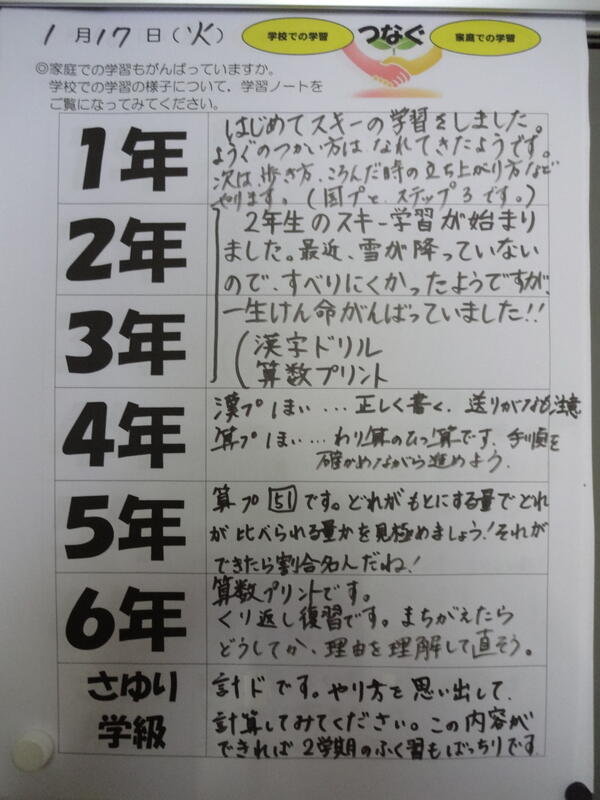 1月17日(火)
学校での学習
つなぐ
家庭での学習
◎家庭での学習もがんばっていますか。
学校での学習の様子について、学習ノートを
ご覧になってみてください。
1年
はじめてスキーの学習をしました。
ようぐのつかい方は、なれてきたようです。
次は、歩き方、ころんだ時の立ち上がり方など
やります。(国プと、ステップ3です。)
2年
3年
2年生のスキー学習が始まり
ました。最近、雪が降っていない
ので、すべりにくかったようですが、
一生けん命がんばっていました!!
漢字ドリル
算数プリント
4年
漢プ1まい…正しく書く、送りがなも注意
算プ1まい…わり算のひっ算です。手順を
確かめながら進めよう。
5年
算プ51です。どれがもとにする量でどれ
が比べられる量かを見極めましょう!それが
できたら割合名人だね!
6年
算数プリントです。
くり返し復習です。まちがえたら
どうしてか、理由を理解して直そう。
さゆり
学級
計ドです。やり方を思い出して、
計算してみてください。この内容が
できれば2学期のふく習もばっちりです。